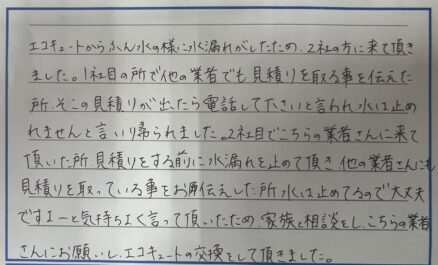 エコキュートからふん水の様に水漏れがしたため、2社の方に来て頂き
ました。1社目の所で他の業者でも見積りを取る事を伝えた
所、そこの見積りが出たら電話して下さいと言われ水は止め
れませんと言い帰られました。2社目でこちらの業者さんに来て
頂いた所見積りをする前に水漏れを止めて頂き、他の業者さんにも
見積りを取っている事をお伝えした所水は止めてるので大丈夫
ですよーと気持ちよく言って頂いたため、家族と相談をし、こちらの業者
さんにお願いし、エコキュートの交換をして頂きました。